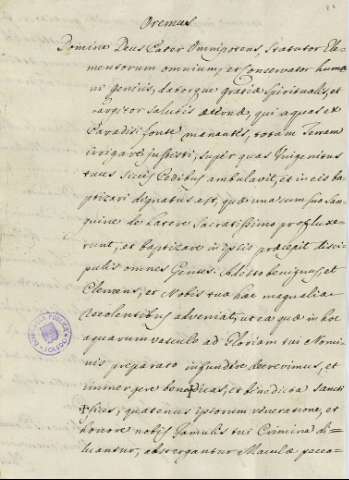 Oremus
Domine Deus Pater Omnipotens, Statutor Ele-
mentorum omnium, et Conservator huma-
ni generis, datorque gratiæ Spiritualis, et
largitor salutis æternæ, qui aquas ex
Paradisi fonte manantes, totam Terram
irrigare jussisti, super quas Unigenitus
tuus Siccis Pedibus ambulavit, et in eis ba-
ptizari dignatus est, quæ una cum Suo San-
guine de Latere Sacratissimo profluxe-
runt, et baptizare in ipsis præcepit disci-
pulis omnes Gentes: Adesto benignus, et
Clemens, et Nobis tua hac magnalia
recolentibus adveniat, ut ea quæ in hoc
aquarum vasculo ad Gloriam tui Nomi-
nis preparato infundere decrevimus, et
immergere benedicas, et benedicta sancti
fices, quatenus ipsorum veneratione, et
honore nobis famulis tui Crimina di-
luantur, abstergantur Maculæ pecca-